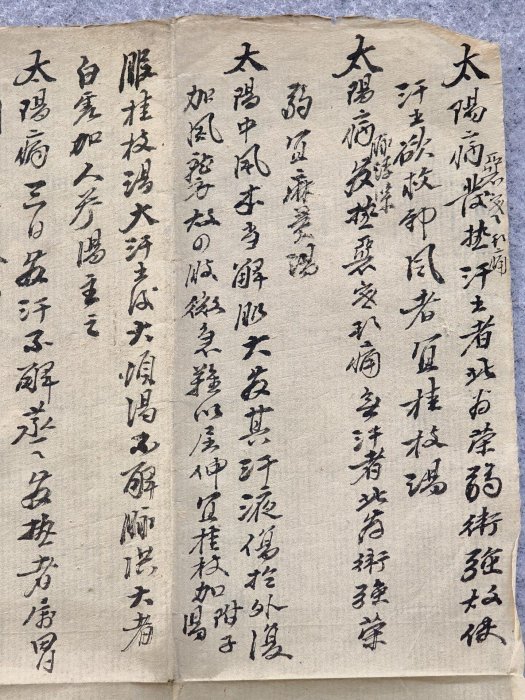 太陽病發热惡寒頭痛汗出者此为荣弱術强故使
汗出欲救邪風者宜桂枝湯
太陽病脉浮發热惡寒頭痛無汗者此为術强荣
弱宜麻黃湯
太陽中風本当解肌大發其汗液傷於外復
加風襲故四肢微急難以屈伸宜桂枝加附子湯
服桂枝湯大汗出後大煩渴不解脉洪大者
白虎加人参湯主之
太陽病三日發汗不解蒸〻發热者屬胃